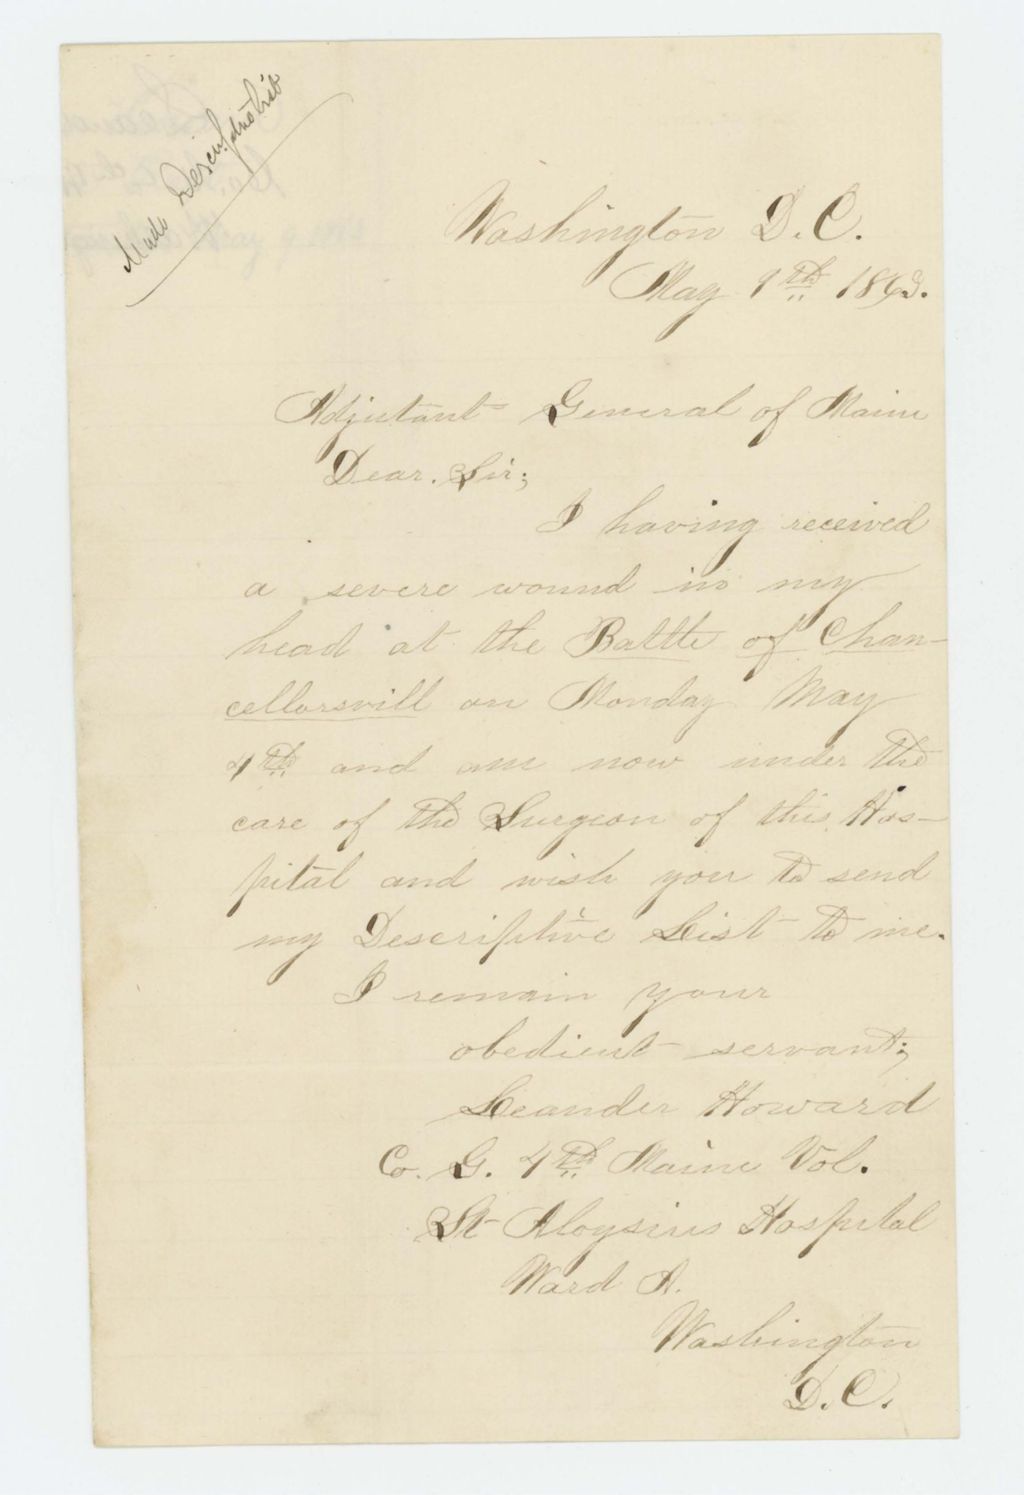 Made Descriptive list
Washington D. C.
May 9th 1863.
Adjutant General of Maine
Dear. Sir;
I having received
a severe wound in my
head at the Battle of Chan-
cellorsvill on Monday May
4th and am now under the
care of the Surgeon of this Hos-
pital and wish you to send
my Descriptive List to me.
I remain your
obedient servant;
Leander Howard
Co. G. 4th Maine Vol.
St Aloysius Hospital
Ward A.
Washington
D. C.